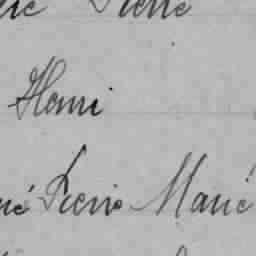 Pierre
Henri
né Pierre Marie